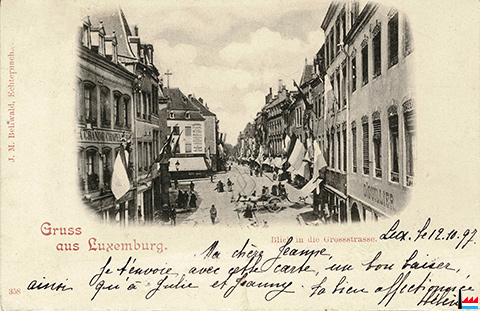 J. M. Bellwald, Echternach.
GRANDE
D'OUTILLER
Gruss
aus Luxemburg.
Blick in die Grossstrasse.
Lux. le 12.10.97.
Ma chère Jeanne,
Je t'envoie, avec cette carte, un bon baiser,
ainsi qu'à Julie et Jeanny. Ta bien affectionnée
Hélène
358